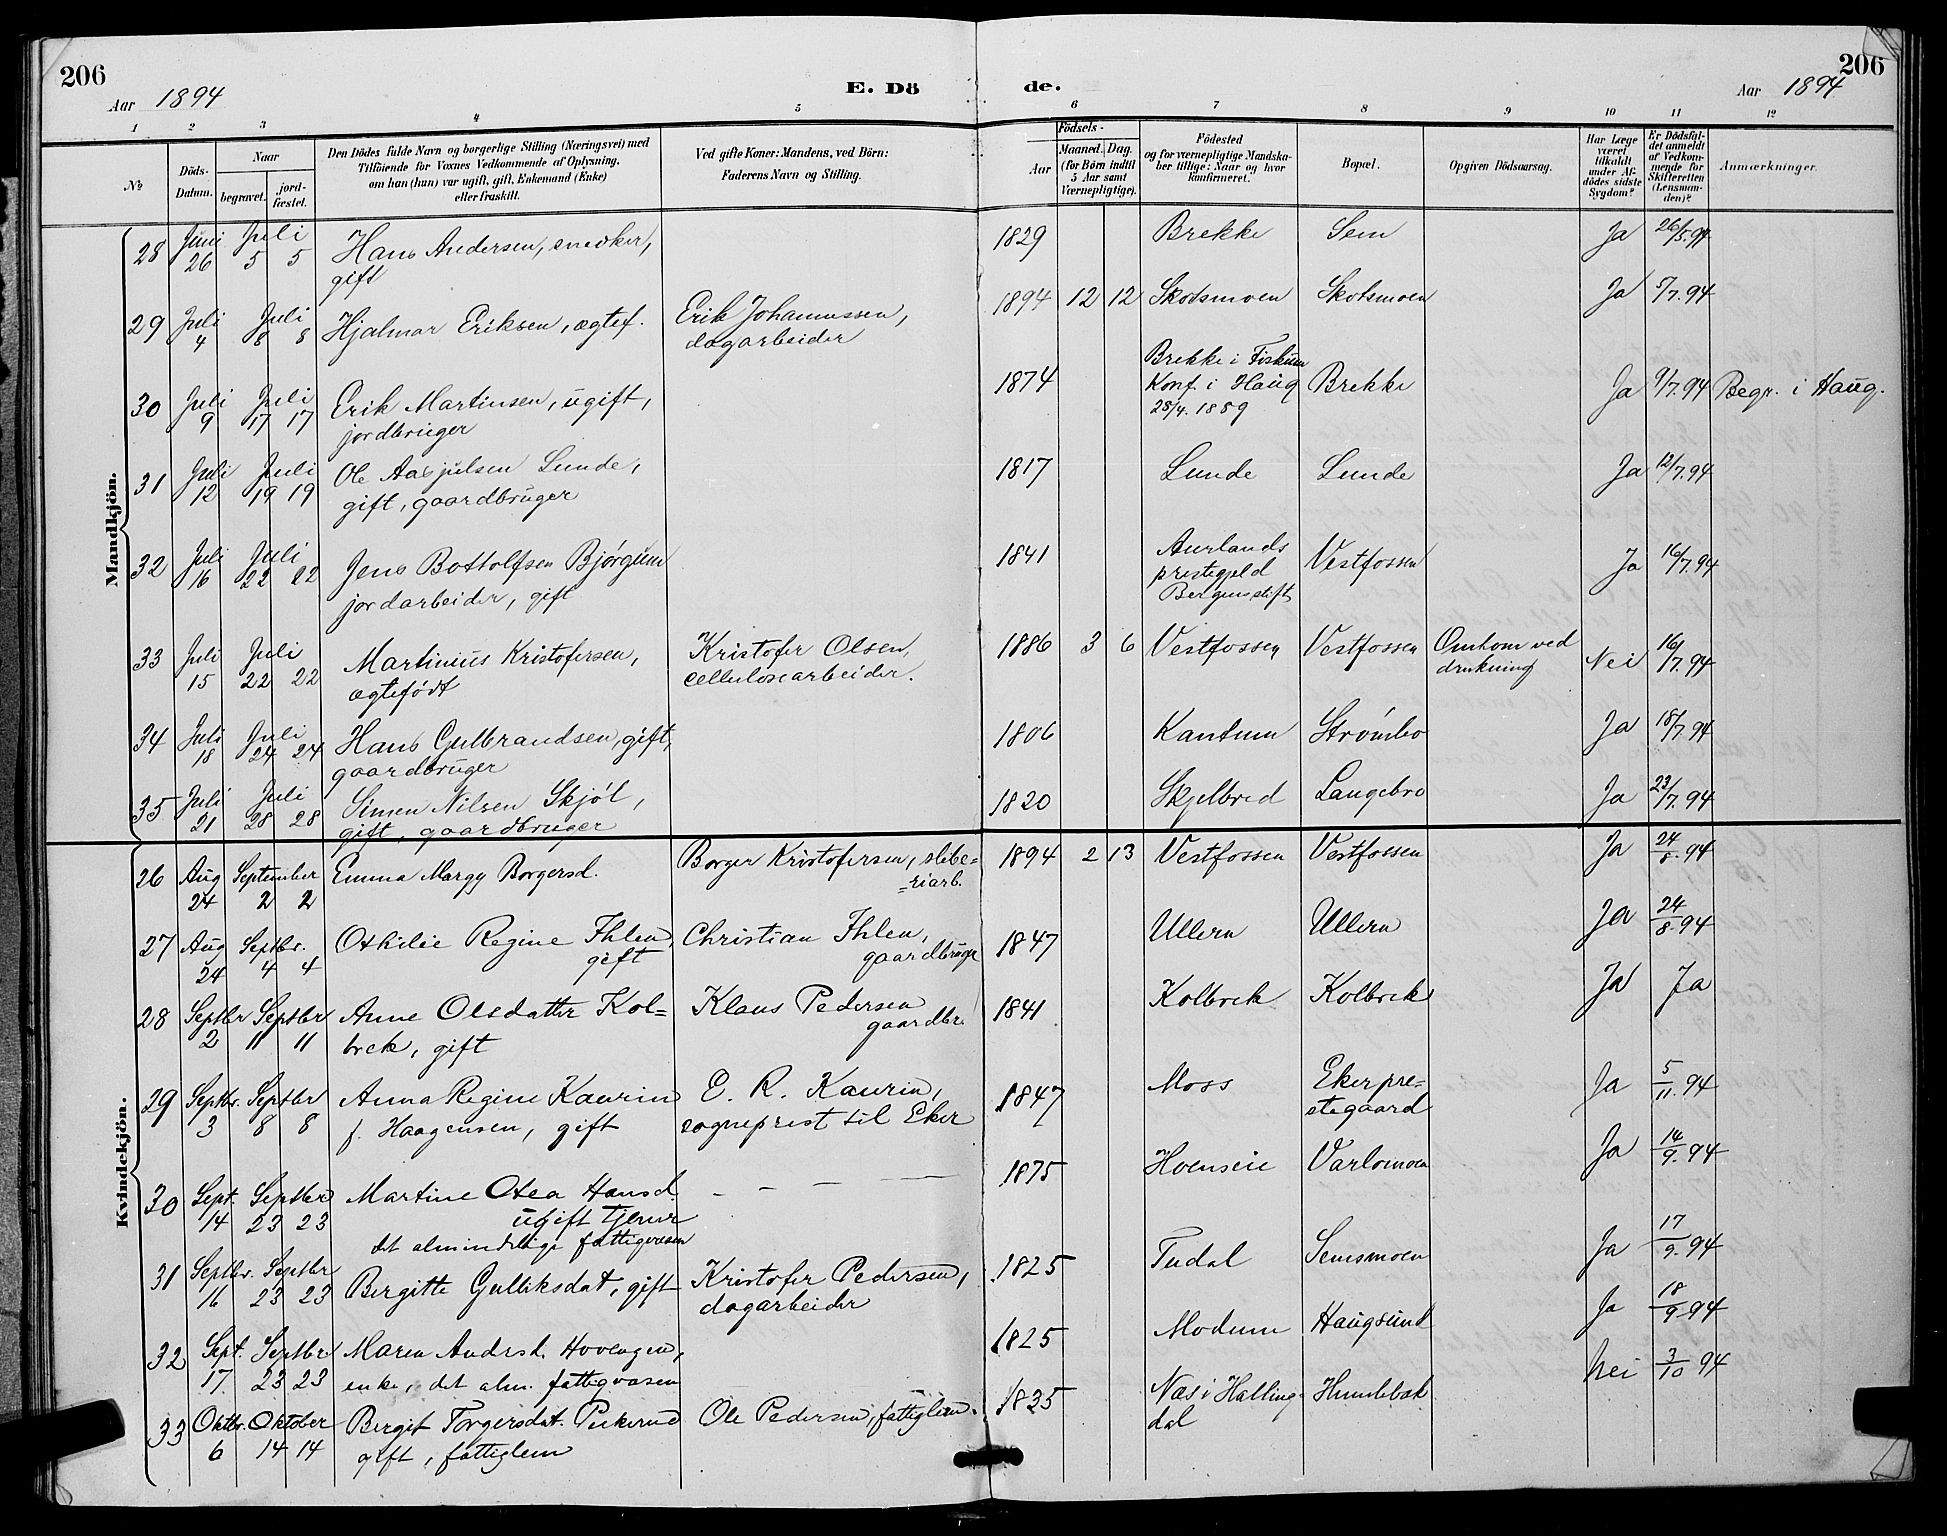 206
206
Aar 1894
E. Dö
de.
Aar 1894
1 2 3 4 5 6 7 8 9 10 11 12
№
Döds-
Datum.
Naar
begravet.
jord-
fæstet.
Den Dödes fulde Navn og borgerlige Stilling (Næringsvei) med
Tilföiende for Voxnes Vedkommende af Oplysning,
om han (hun) var ugift, gift, Enkemand (Enke)
eller fraskilt.
Ved gifte Koner: Mandens, ved Börn:
Faderens Navn og Stilling.
Födsels-
Aar
Maaned. Dag.
(for Börn indtil
5 Aar samt
Værnepligtige).
Födested
og for værnepligtige Mandska-
ber tillige: Naar og hvor
konfirmeret.
Bopæl.
Opgiven Dödsaarsag.
Har Læge
været
tilkaldt
under Af-
dödes sidste
Sygdom?
Er Dödsfal-
det anmeldt
af Vedkom-
mende for
Skifteretten
(Lensman-
den)?
Anmærkninger.
Mandkjön.
28 Juni 26 Juli 5 5 Hans Andersen, snedker,
gift
1829 Brekke Sem Ja 26/5.94
29 Juli 4 Juli 8 8 Hjalmar Eriksen, ægtef.
Erik Johannessen,
dagarbeider
1894 12 12 Skotsmoen Skotsmoen Ja 5/7.94
30 Juli 9 Juli 17 17 Erik Martinsen, ugift,
jordbruger
1874 Brekke i Fiskum
Konf. i Haug
28/4. 1889
Brekke Ja 9/7.94 Begr. i Haug.
31 Juli 12 Juli 19 19 Ole Aasjulsen Lunde,
gift, gaardbruger
1817 Lunde Lunde Ja 12/7.94
32 Juli 16 Juli 22 22 Jens Bottolfsen Bjørgum
jordarbeider, gift
1841 Aurlands
prestegjeld
Bergens stift
Vestfossen Ja 16/7.94
33 Juli 15 Juli 22 22 Martinius Kristofersen,
ægtefødt
Kristofer Olsen,
cellulosearbeider.
1886 3 6 Vestfossen Vestfossen Omkom ved
drukning
Nei 16/7.94
34 Juli 18 Juli 24 24 Hans Gulbrandsen, gift,
gaardbruger
1806 Kantum Strømbo Ja 18/7.94
35 Juli 21 Juli 28 28 Simen Nilsen Skjøl,
gift, gaardbruger
1820 Skjelbred Langebro Ja 23/7.94
Kvindekjön.
26 Aug 24 September 2 2 Emma Margy Borgersd.
Borger Kristofersen, slibe-
=riarb.
1894 2 13 Vestfossen Vestfossen Ja 24/8.94
27 Aug 24 Septbr. 4 4 Othilie Regine Ihlen,
gift
Christian Ihlen,
gaardbruge
1847 Ullern Ullern Ja 24/8.94
28 Septbr 2 Septbr 11 11 Anne Olsdatter Kol=
brek, gift
Klaus Pedersen
gaardbr.
1841 Kolbrek Kolbrek Ja Ja
29 Septbr. 3 Septbr 8 8 Anna Regine Kaurin
f. Haagensen, gift
E. R. Kaurin,
sogneprest til Eker
1847 Moss Eker pre=
stegaard
Ja 5/11.94
30 Sept. 14 Septbr 23 23 Martine Otea Hansd.
ugift tjener
det almindelige fattigvæsen
— — — —
1875 Hoenseie Varlomoen Ja 14/9.94
31 Septbr. 16 Septbr 23 23 Birgitte Gulliksdat, gift
Kristofer Pedersen,
dagarbeider
1825 Tudal Semsmoen Ja 17/9.94
32 Sept. 17. Septbr 23 23 Maren Andersd. Hovengen,
enke, det alm. fattigvæsen
1825 Modum Haugsund Ja 18/9.94
33 Oktbr. 6 Oktober 14 14 Bergit Torgersdat.
gift, fattiglem
Ole Pedersen, fattiglem.
1835 Næs i Halling=
dal
Humlebæk nei 3/10 94